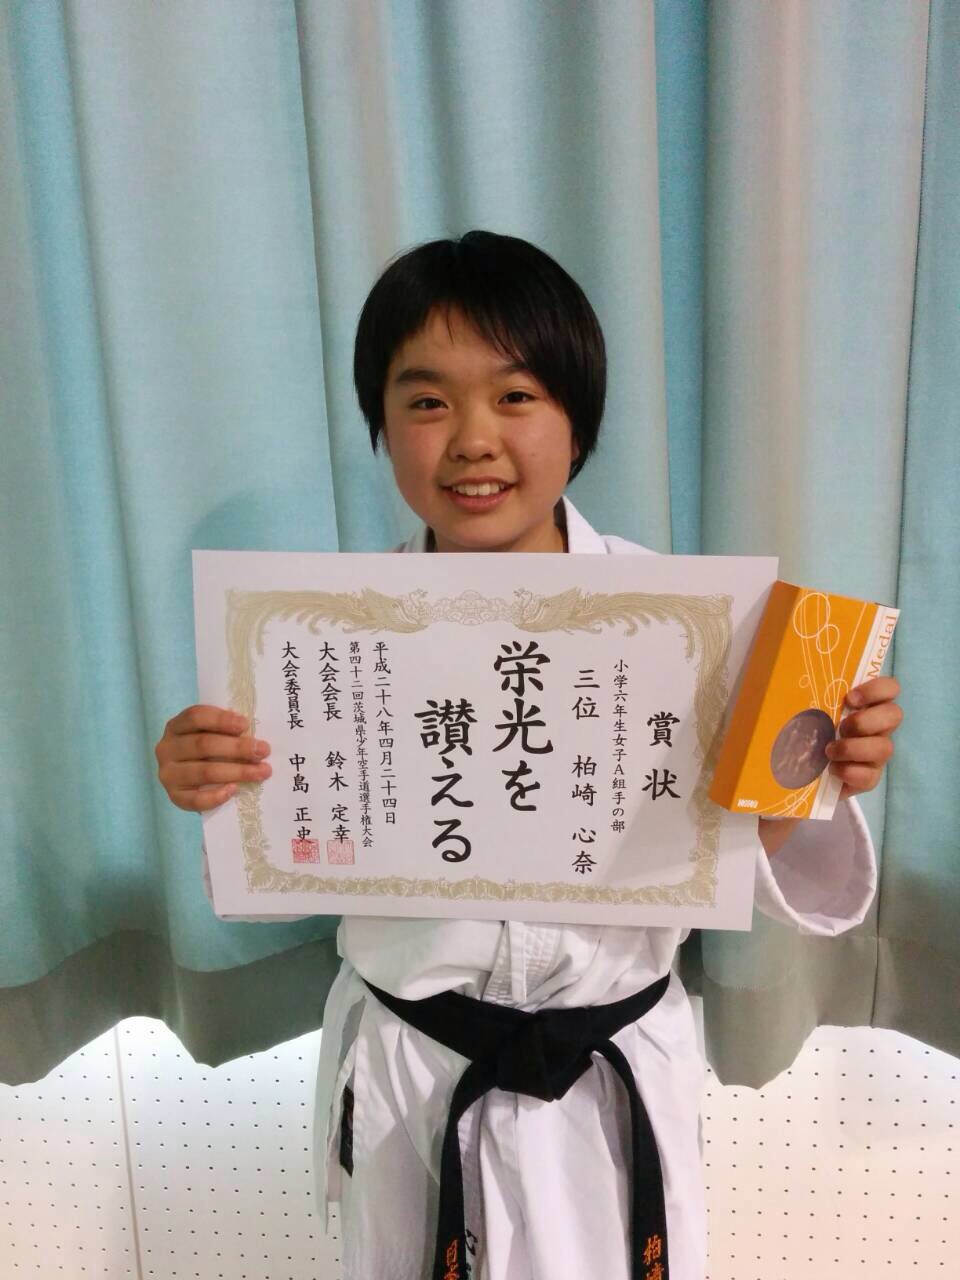 賞状
小学六年生女子A組手の部
三位 柏崎 心奈
栄光を
讃える
平成二十八年四月二十四日
第四十二回茨城県少年空手道選手権大会
大会会長 鈴木 定幸
大会委員長 中島 正史
Medal
柏崎